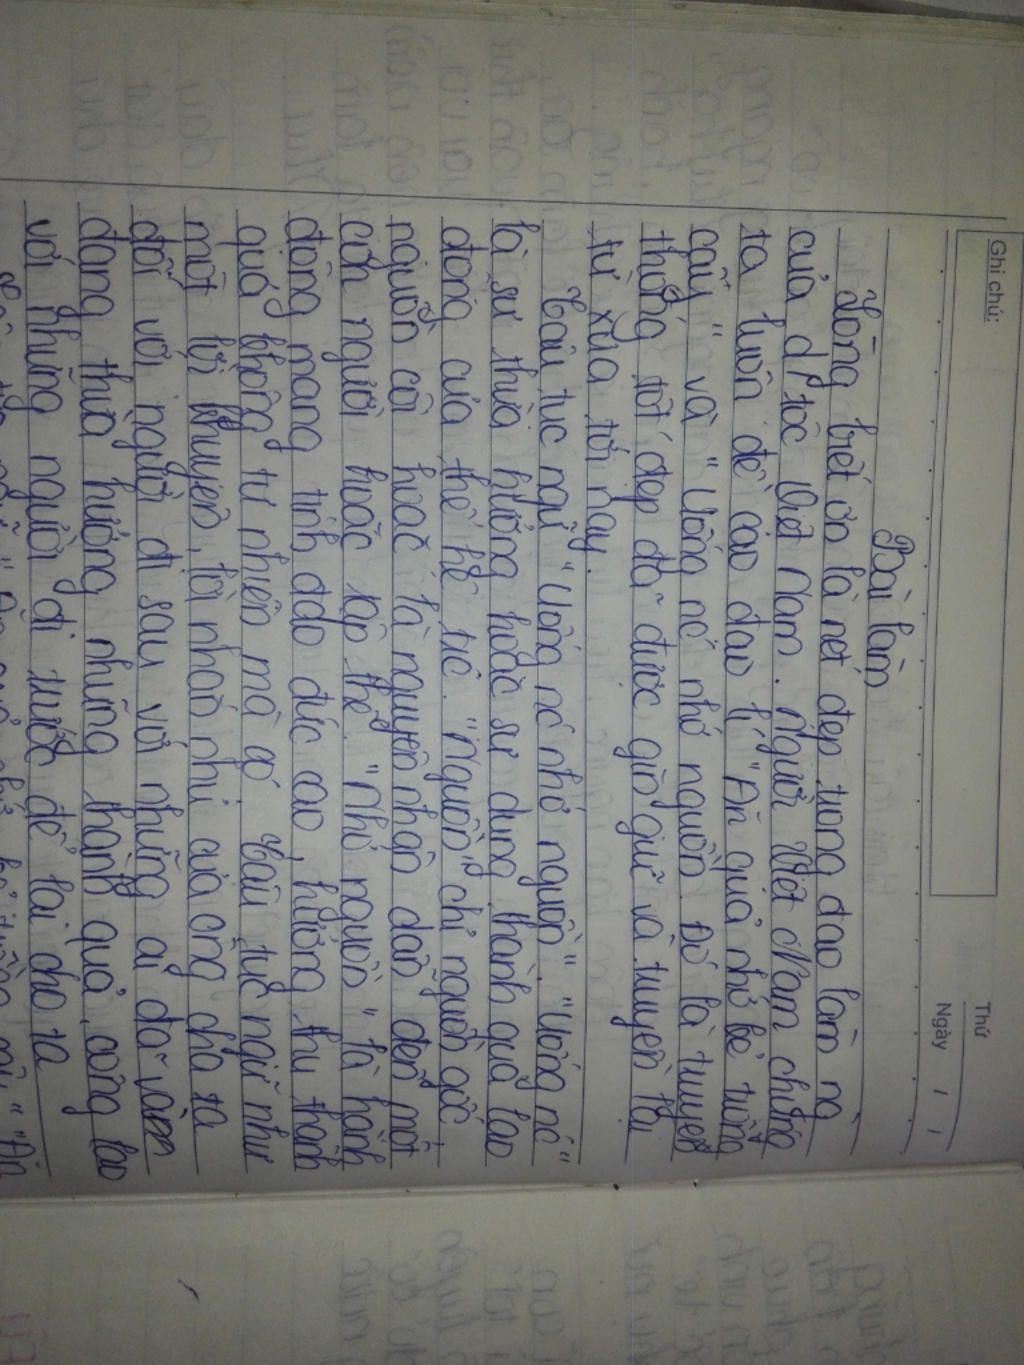 Ghi chú:
Thứ
Ngày / /
Bài làm
Lòng biết ơn là nét đẹp trong đạo làm ng
của d/tộc Việt Nam. Người Việt Nam chúng
ta luôn đề cao đạo lí "Ăn quả nhớ kẻ trồng
cây" và "Uống nc nhớ nguồn. Đó là truyền
thống tốt đẹp đã được gìn giữ và truyền lại
từ xưa tới nay.
Câu tục ngữ "Uống nc nhớ nguồn". "Uống nc"
là sự thừa hưởng hoặc sử dụng thành quả lao
động của thế hệ trc. "Nguồn" chỉ nguồn gốc
nguồn cội hoặc là nguyên nhân dẫn đến một
con người hoặc tập thể "Nhớ nguồn" là hành
động mang tính đạo đức cao, hưởng thụ thành
quả không tự nhiên mà có Câu tục ngữ như
một lời khuyên, lời nhắn nhủ của ông cha ta
đối với người đi sau với những ai đã và
đang thừa hưởng những thành quả, công lao
với những người đi trước để lại cho ta